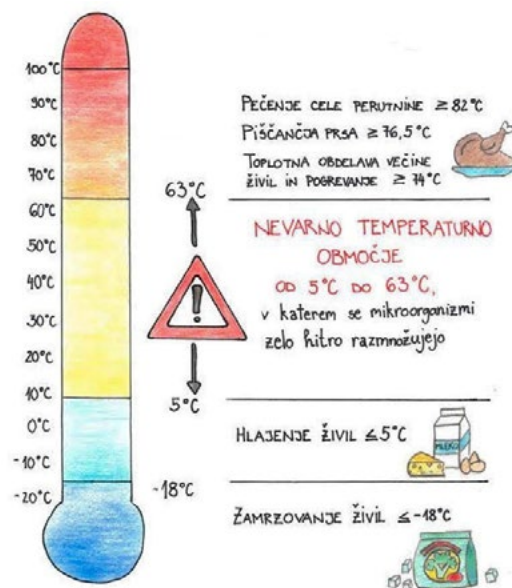 100°C
90°C
80°C
70°C
60°C
50°C
40°C
30°C
20°C
10°C
0°C
-10°C
-20°C
63°C
5°C
-18°C
PEČENJE CELE PERUTNINE ≥ 82°C
PIŠČANČJA PRSA ≥ 76,5°C
TOPLOTNA OBDELAVA VEČINE
ŽIVIL IN POGREVANJE ≥ 74°C
NEVARNO TEMPERATURNO
OBMOČJE
OD 5°C DO 63°C,
v katerem se mikroorganizmi
zelo hitro razmnožujejo
HLAJENJE ŽIVIL ≤ 5°C
MLEKO
ZAMRZOVANJE ŽIVIL ≤ -18°C